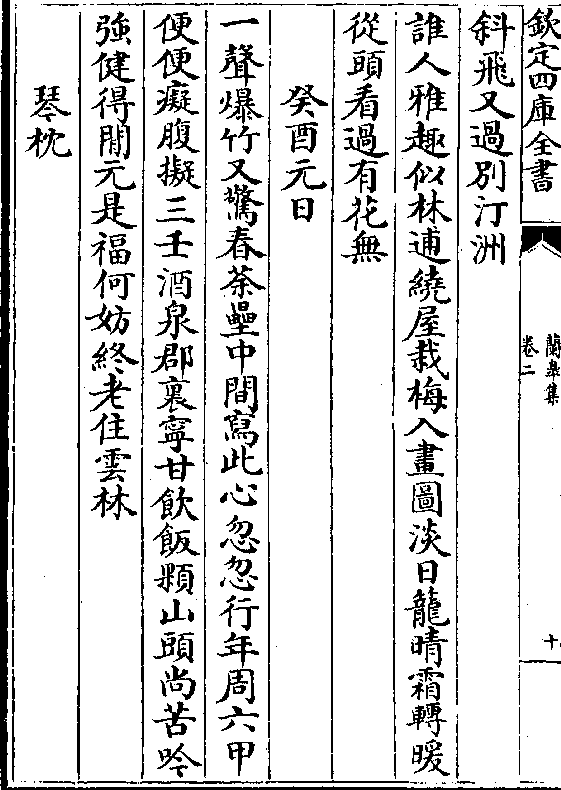 欽定四庫全書
蘭皋集
卷二
十
斜飛又過別汀洲
誰人雅趣似林逋繞屋栽梅入畫圖淡日籠晴霜轉暖
從頭看過有花無
癸酉元日
一聲爆竹又驚春荼壘中間寫此心忽忽行年周六甲
便便癡腹擬三壬酒泉郡裏寧甘飲飯顆山頭尚苦吟
強健得閒元是福何妨終老住雲林
琴枕